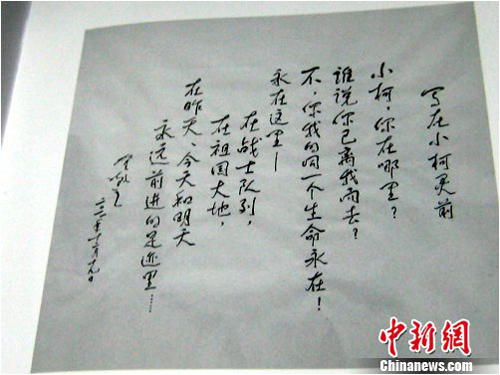 写在小柯灵前
小柯，你在哪里？
谁说你已离我而去？
不，你我的同一个生命永在！
永在这里—
在战士队列，
在祖国大地，
在昨天、今天和明天
永远前进的足迹里……
贺敬之
中新網
www.chinanews.com